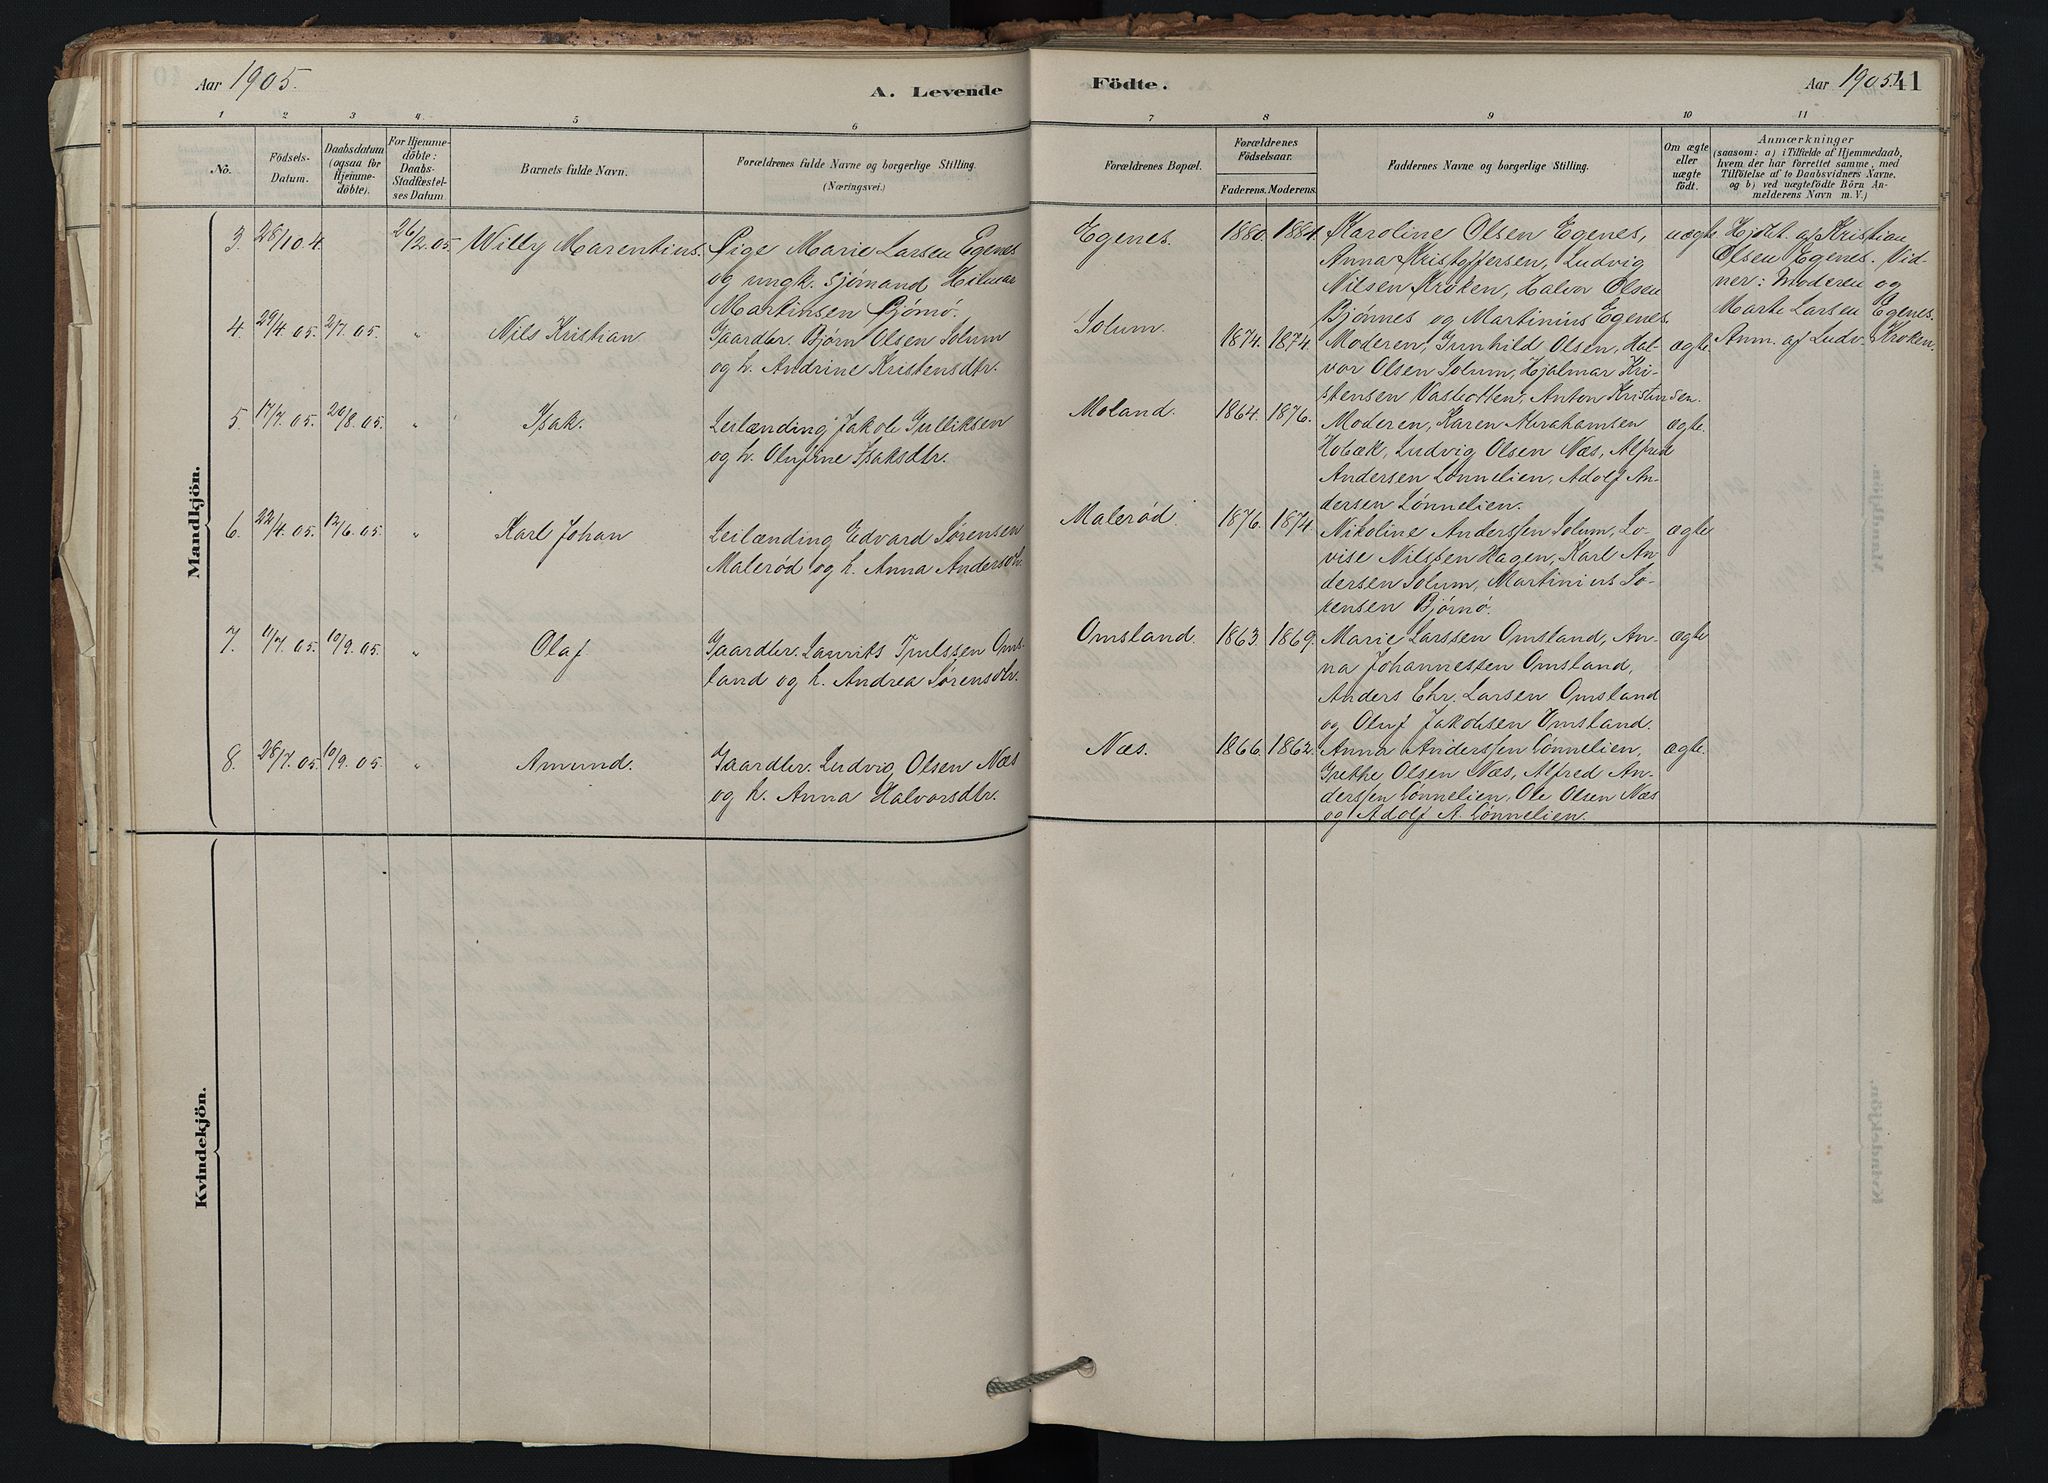 Aar 1905.
A. Levende
Födte.
Aar 1905.
41
1 2 3 4 5 6 7 8 9 10 11
No.
Födsels-
Datum.
Daabsdatum
(ogsaa for
Hjemme-
döbte).
For Hjemme-
döbte:
Daabs-
Stadfæstel-
ses Datum.
Barnets fulde Navn.
Forældrenes fulde Navne og borgerlige Stilling.
(Næringsvei.)
Forældrenes Bopæl.
Forældrenes
Födselsaar.
Faderens. Moderens.
Faddernes Navne og borgerlige Stilling.
Om ægte
eller
uægte
födt.
Anmærkninger
(saasom: a) i Tilfælde af Hjemmedaab,
hvem der har forrettet samme, med
Tilföielse af to Daabsvidners Navne,
og b) ved uægtefödte Börn An-
melderens Navn m. V.)
Mandkjön.
3. 28/10.4 26/2.05. Willy Marentius.
Pige Marie Larsen Egenes
og ungk. Sjömand Hilmar
Martinsen Bjørnø.
Egenes. 1880. 1884.
Karoline Olsen Egenes,
Anna Kristoffersen, Ludvig
Nilsen Kroken, Halvor Olsen
Bjønnes og Martinius Egenes.
uægte.
Hjdbt. af Kristian
Olsen Egenes. Vid-
ner: Moderen og
Marte Larsen Egenes.
Anm. af Ludv. Kroken.
4. 29/4 05. 2/7. 05. " Nils Kristian
Gaardbr. Bjørn Olsen Solum
og h. Andrine Kristensdtr.
Solum. 1874. 1874.
Moderen, Gunhild Olsen, Hal-
vor Olsen Solum, Hjalmar Kri-
stensen Vasbotten, Anton Kristensen.
ægte.
5. 17/7. 05. 20/8. 05. " Isak.
Leilænding Jakob Gulliksen
og h. Olufine Isaksdtr.
Moland. 1864. 1876.
Moderen, Karen Abrahamsen
Hobæk, Ludvig Olsen Næs, Alfred
Andersen Lønnelien, Adolf An-
dersen Lønnelien.
ægte.
6. 22/4. 05. 12/6. 05. " Karl Johan
Leilænding Edvard Sørensen
Malerød og h. Anna Andersdtr.
Malerød 1876. 1874.
Nikoline Anderssen Solum, Lo-
vise Nilssen Hagen, Karl An-
dersen Solum, Martinius Sø-
rensen Bjørnø.
ægte
7. 11/7. 05. 10/9. 05. " Olaf
Gaardbr. Laurits Trulssen Oms-
land og h. Andrea Sørensdtr.
Omsland. 1863. 1869.
Marie Larssen Omsland, An-
na Johannessen Omsland,
Anders Chr. Larsen Omsland
og Oluf Jakobsen Omsland.
ægte
8. 28/7. 05. 10/9. 05. " Amund.
Gaardbr. Ludvig Olsen Næs
og h. Anna Halvorsdtr.
Næs. 1866. 1862.
Anna Anderssen Lønnelien,
Grethe Olsen Næs, Alfred An-
derssen Lønnelien, Ole Olsen Næs
og Adolf A. Lønnelien.
ægte.
Kvindekjön.